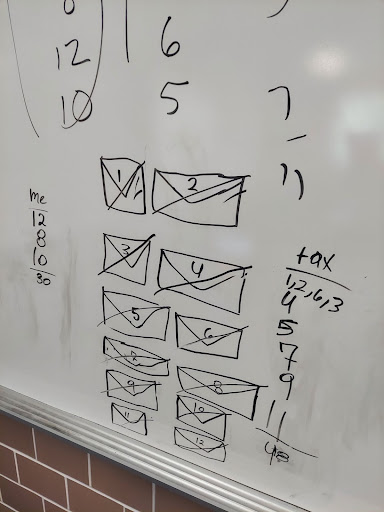 8
12
10
6
5
7
11
1
2
3
4
5
6
7
9
8
11
10
12
me
12
8
10
30
tax
1,2,6,3
4
5
7
9
11
48